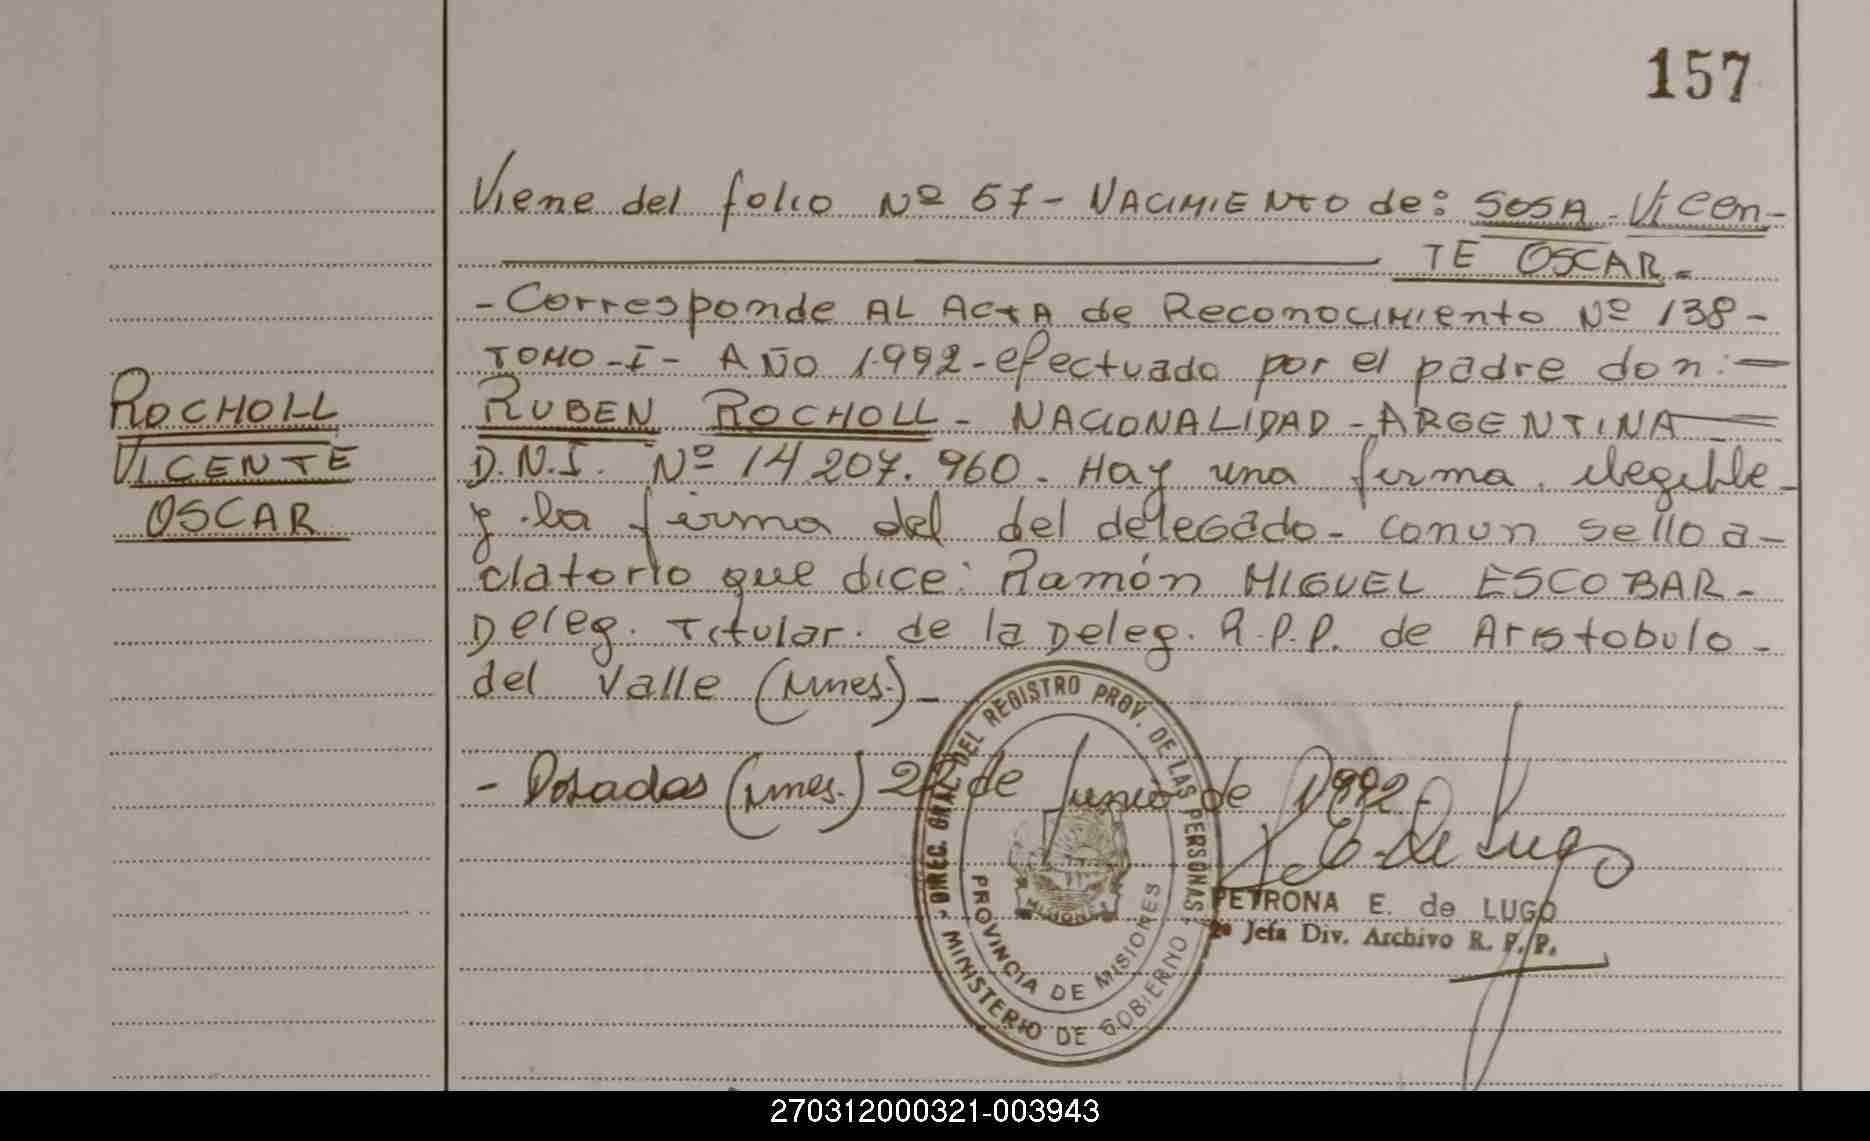 157
Viene del folio Nº 57 - NACIMIENTO de: SOSA - Vicen-
TE OSCAR.-
- Corresponde AL ACTA de Reconocimiento Nº 138 -
TOMO - I - AÑO 1.992 - efectuado por el padre don: -
ROCHOLL
VICENTE
OSCAR
RUBEN ROCHOLL - NACIONALIDAD - ARGENTINA
D.N.I. Nº 14 207.960. Hay una firma ilegible -
y la firma del del delegado - con un sello a-
clatorio que dice: Ramón MIGUEL ESCOBAR -
Deleg. Titular. de la Deleg. R.P.P. de Aristobulo -
del Valle (Mnes.) -
- Posadas (Mnes.) 22 de Junio de 1992 -
P. E. de Lugo
PETRONA E. de LUGO
2ª Jefa Div. Archivo R. P. P.
DIREC. GRAL. DEL REGISTRO PROV. DE LAS PERSONAS
MINISTERIO DE GOBIERNO
PROVINCIA DE MISIONES
MISIONES
270312000321-003943